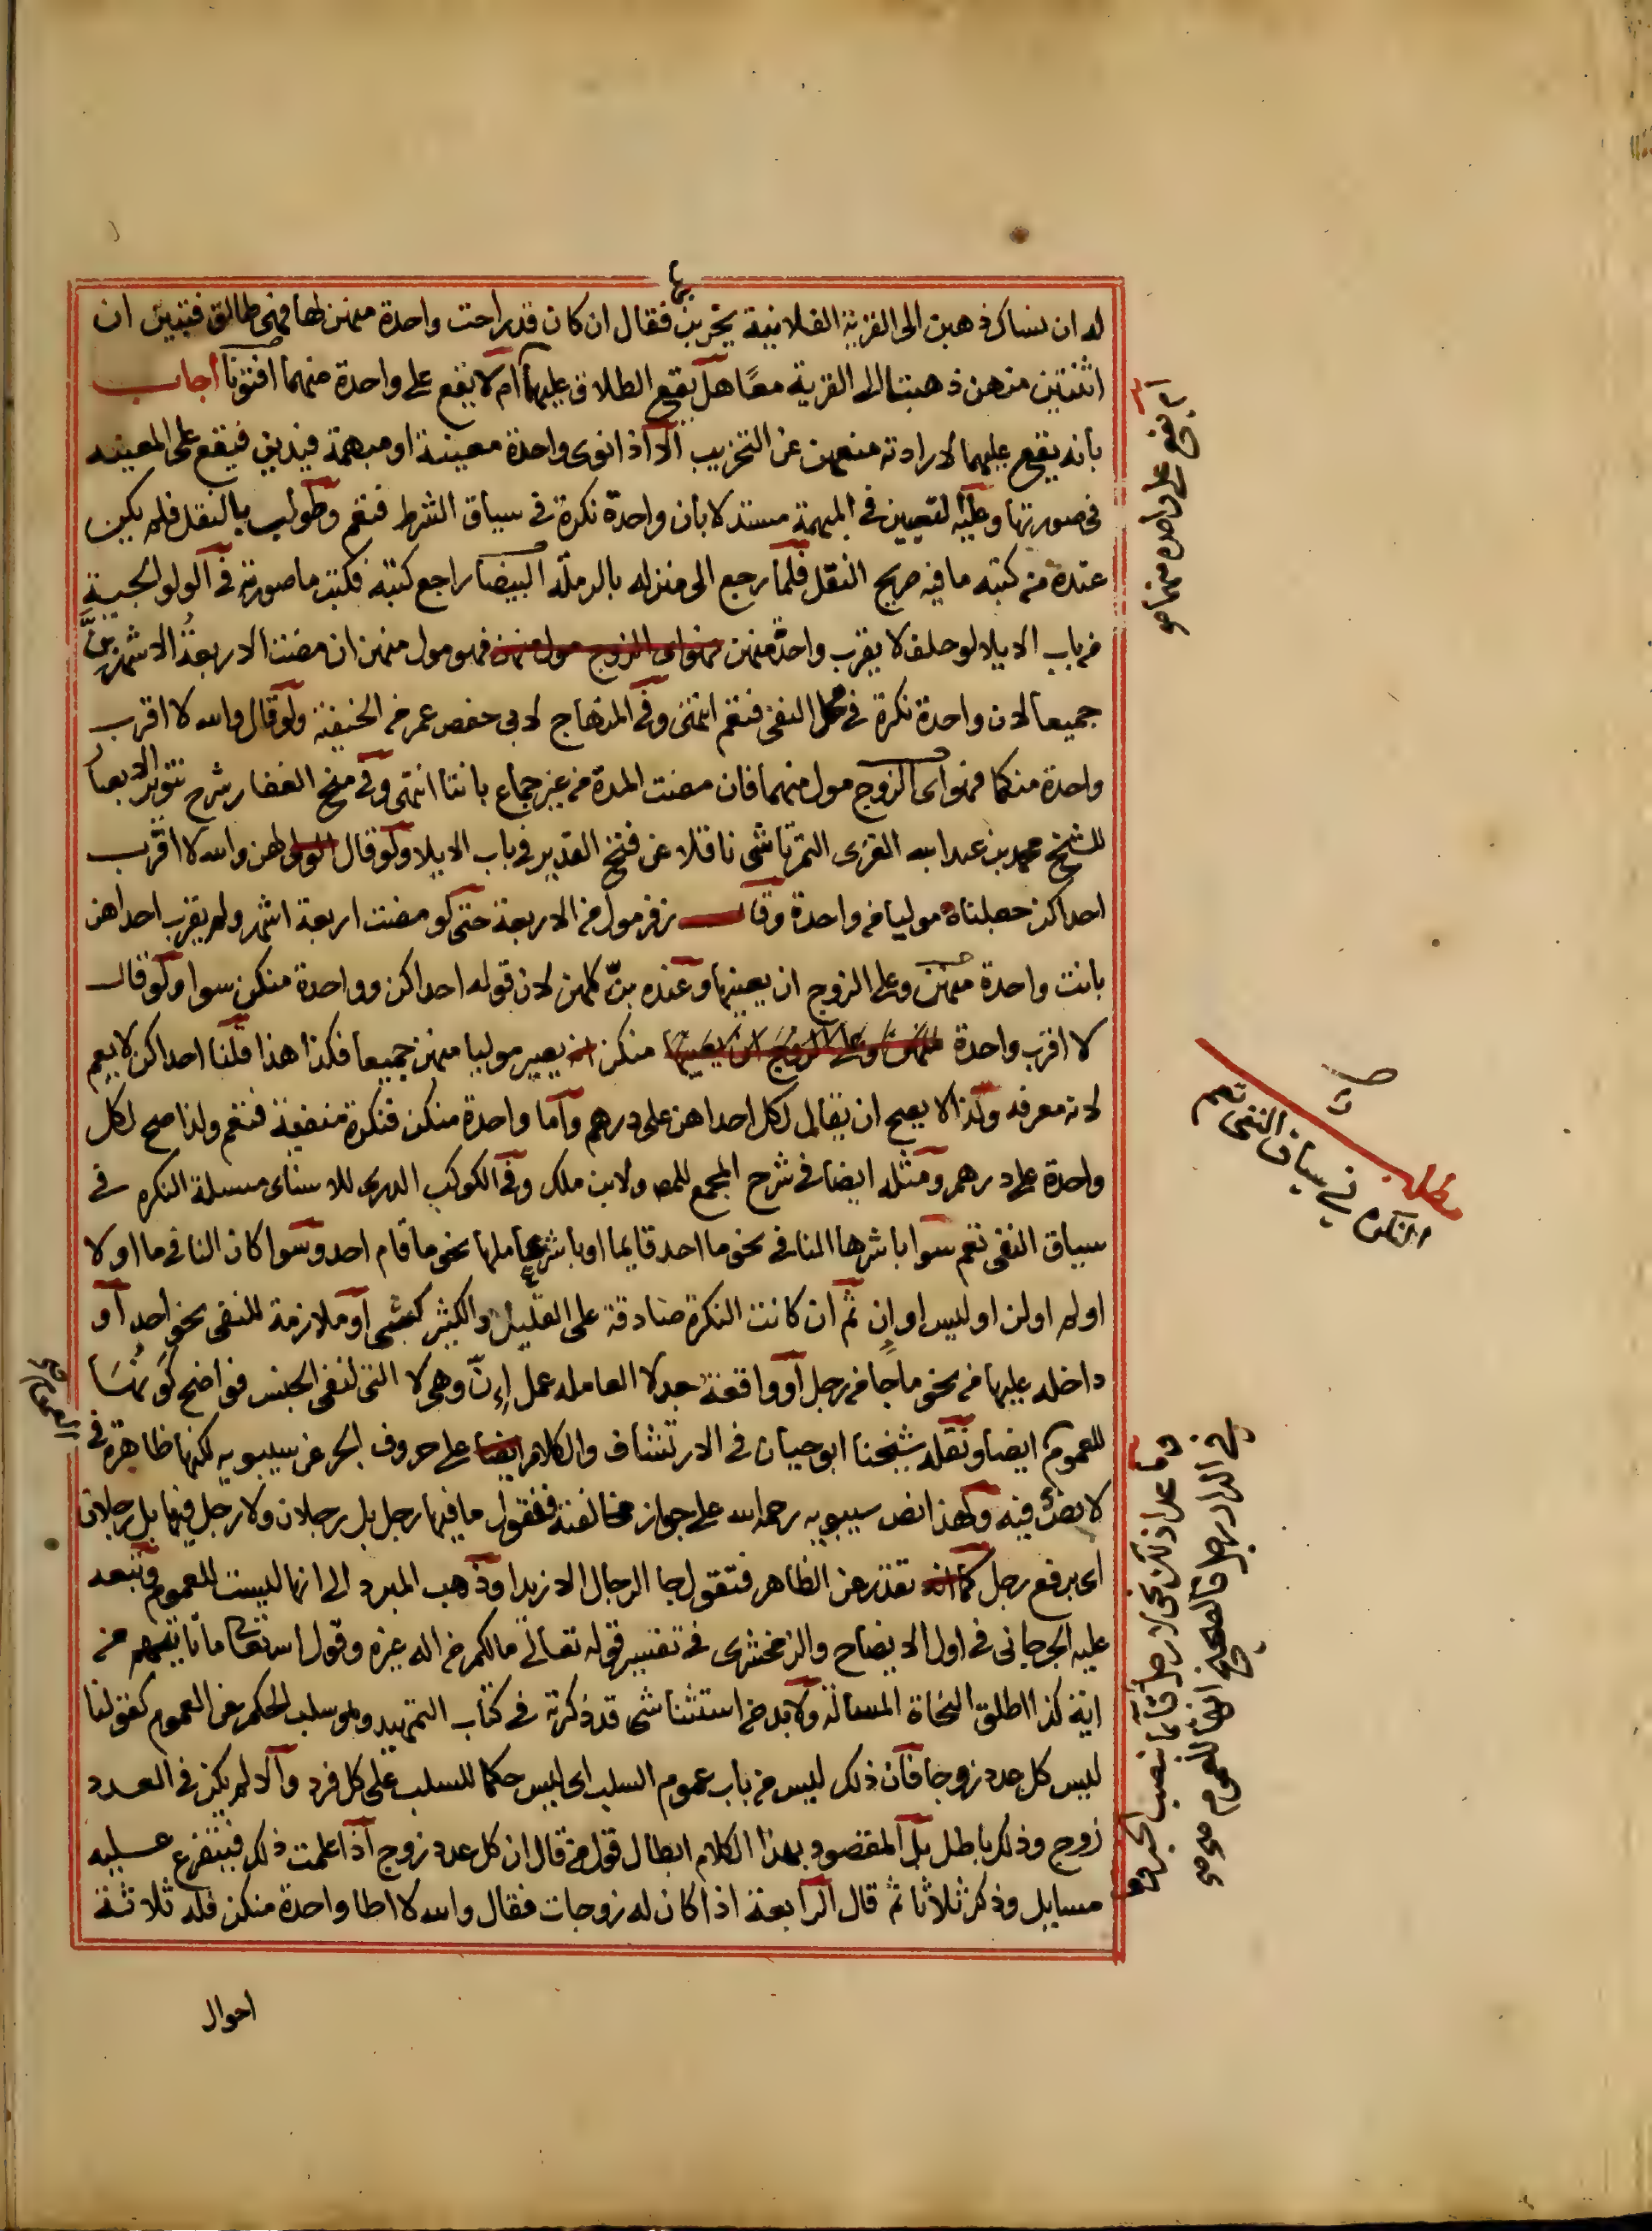 له ان نساك ذهبن الى القرية الفلانية يخربنها فقال ان كان قد راحت واحدة منهن لها فهى طالق فتبين ان
اثنتين منهن ذهبتا الى القرية معًا هل يقع الطلاق عليهما ام لا يقع على واحدة منهما افتونا اجاب
بانه يقع عليهما لارادته منعهن عن التخريب الا اذا نوى واحدة معينة او مبهمة فيدين فيقع على المعينه
فى صورتها وعليه التعيين فى المبهمة مستدلا بان واحدة نكرة فى سياق الشرط فتعم وطولب بالنقل فلم يكن
عنده من كتبه ما فيه صريح النقل فلما رجع الى منزله بالرملة البيضا راجع كتبه فكتب ما صورته فى الولوالجية
من باب الايلا لو حلف لا يقرب واحدة منهن فهو اى الزوج مول منهن فهو مول منهن ان مضت الاربعة الاشهر بن
جميعا لان واحدة نكرة فى محل النفى فتعم انتهى وفى المنهاج لابى حفص عمر من الحنفية ولو قال والله لا اقرب
واحدة منكما فهو اى الزوج مول منهما فان مضت المدة من غير جماع بانتا انتهى وفى منح الغفار شرح تنوير الابصار
للشيخ محمد بن عبد الله الغزى التمرتاشى ناقلا عن فتح القدير فى باب الايلا ولو قال المولى لهن والله لا اقرب
احداكن جعلناه موليا من واحدة وقال زفر مول من الاربعة حتى لو مضت اربعة اشهر ولم يقرب احداهن
بانت واحدة منهن وعلى الزوج ان يعينها وعنده بن كلهن لان قوله احداكن وواحدة منكن سوا ولو قال
لا اقرب واحدة منهن وعلى الزوج ان يعينها منكن انه يصير موليا منهن جميعا فكذا هذا قلنا احداكن لا يعم
لانه معرفه ولذا لا يصح ان يقال لكل احداهن على درهم واما واحدة منكن فنكرة منفية فتعم ولذا صح لكل
واحدة على درهم ومثله ايضا فى شرح المجمع للمص ولابن ملك وفى الكوكب الدرى للاسناى مسئلة النكره فى
سياق النفى تعم سوا باشرها النافى نحو ما احد قايما او باشر عاملها نحو ما قام احد وسوا كان النافى ما او لا
او لم او لن او ليس او ان ثم ان كانت النكرة صادقة على القليل والكثير كشى او ملازمة للنفى نحو احد او
داخله عليها من نحو ما جا من رجل او واقعة بعد لا العامله عمل إنّ وهى لا التى لنفى الجنس فواضح كونها
للعموم ايضا ونقله شيخنا ابو حيان فى الارتشاف والكلام ايضا على حروف الجر عن سيبويه لكنها ظاهرة فى
العموم صح
لا نص فيه ولهذا نص سيبويه رحمه الله على جواز مخالفته فتقول ما فيها رجل بل رجلان ولا رجل فيها بل رجلان
اى برفع رجل كما انه تعذر عن الظاهر فتقول جا الرجال الا زيدا وذهب المبرد الى انها ليست للعموم وتبعه
عليه الجرجانى فى اول الايضاح والزمخشرى فى تفسير قوله تعالى مالكم من اله غيره وقول الله تعالى ما تاتيهم من
اية كذا اطلق النحاة المسالة ولا بد من استثنا شى قد ذكرته فى كتاب التمهيد وهو سلب الحكم عن العموم كقولنا
ليس كل عدد زوجا فان ذلك ليس من باب عموم السلب اى ليس حكما للسلب على كل فرد والا لم يكن فى العدد
زوج وذلك باطل بل المقصود بهذا الكلام ابطال قول من قال ان كل عدد زوج اذا علمت ذلك فيتفرع عليه
مسايل وذكر ثلاثا ثم قال الرابعة اذا كان له زوجات فقال والله لا اطا واحدة منكن فله ثلاثة
احوال
ام يقع على واحده منهما صح
مطلب
النكره فى سياق النفى تعم
وما عدا ذلك نحو لا رجل قائما بنصب الخبر وما
فى الدار رجل فالصحيح انها للعموم صح صح